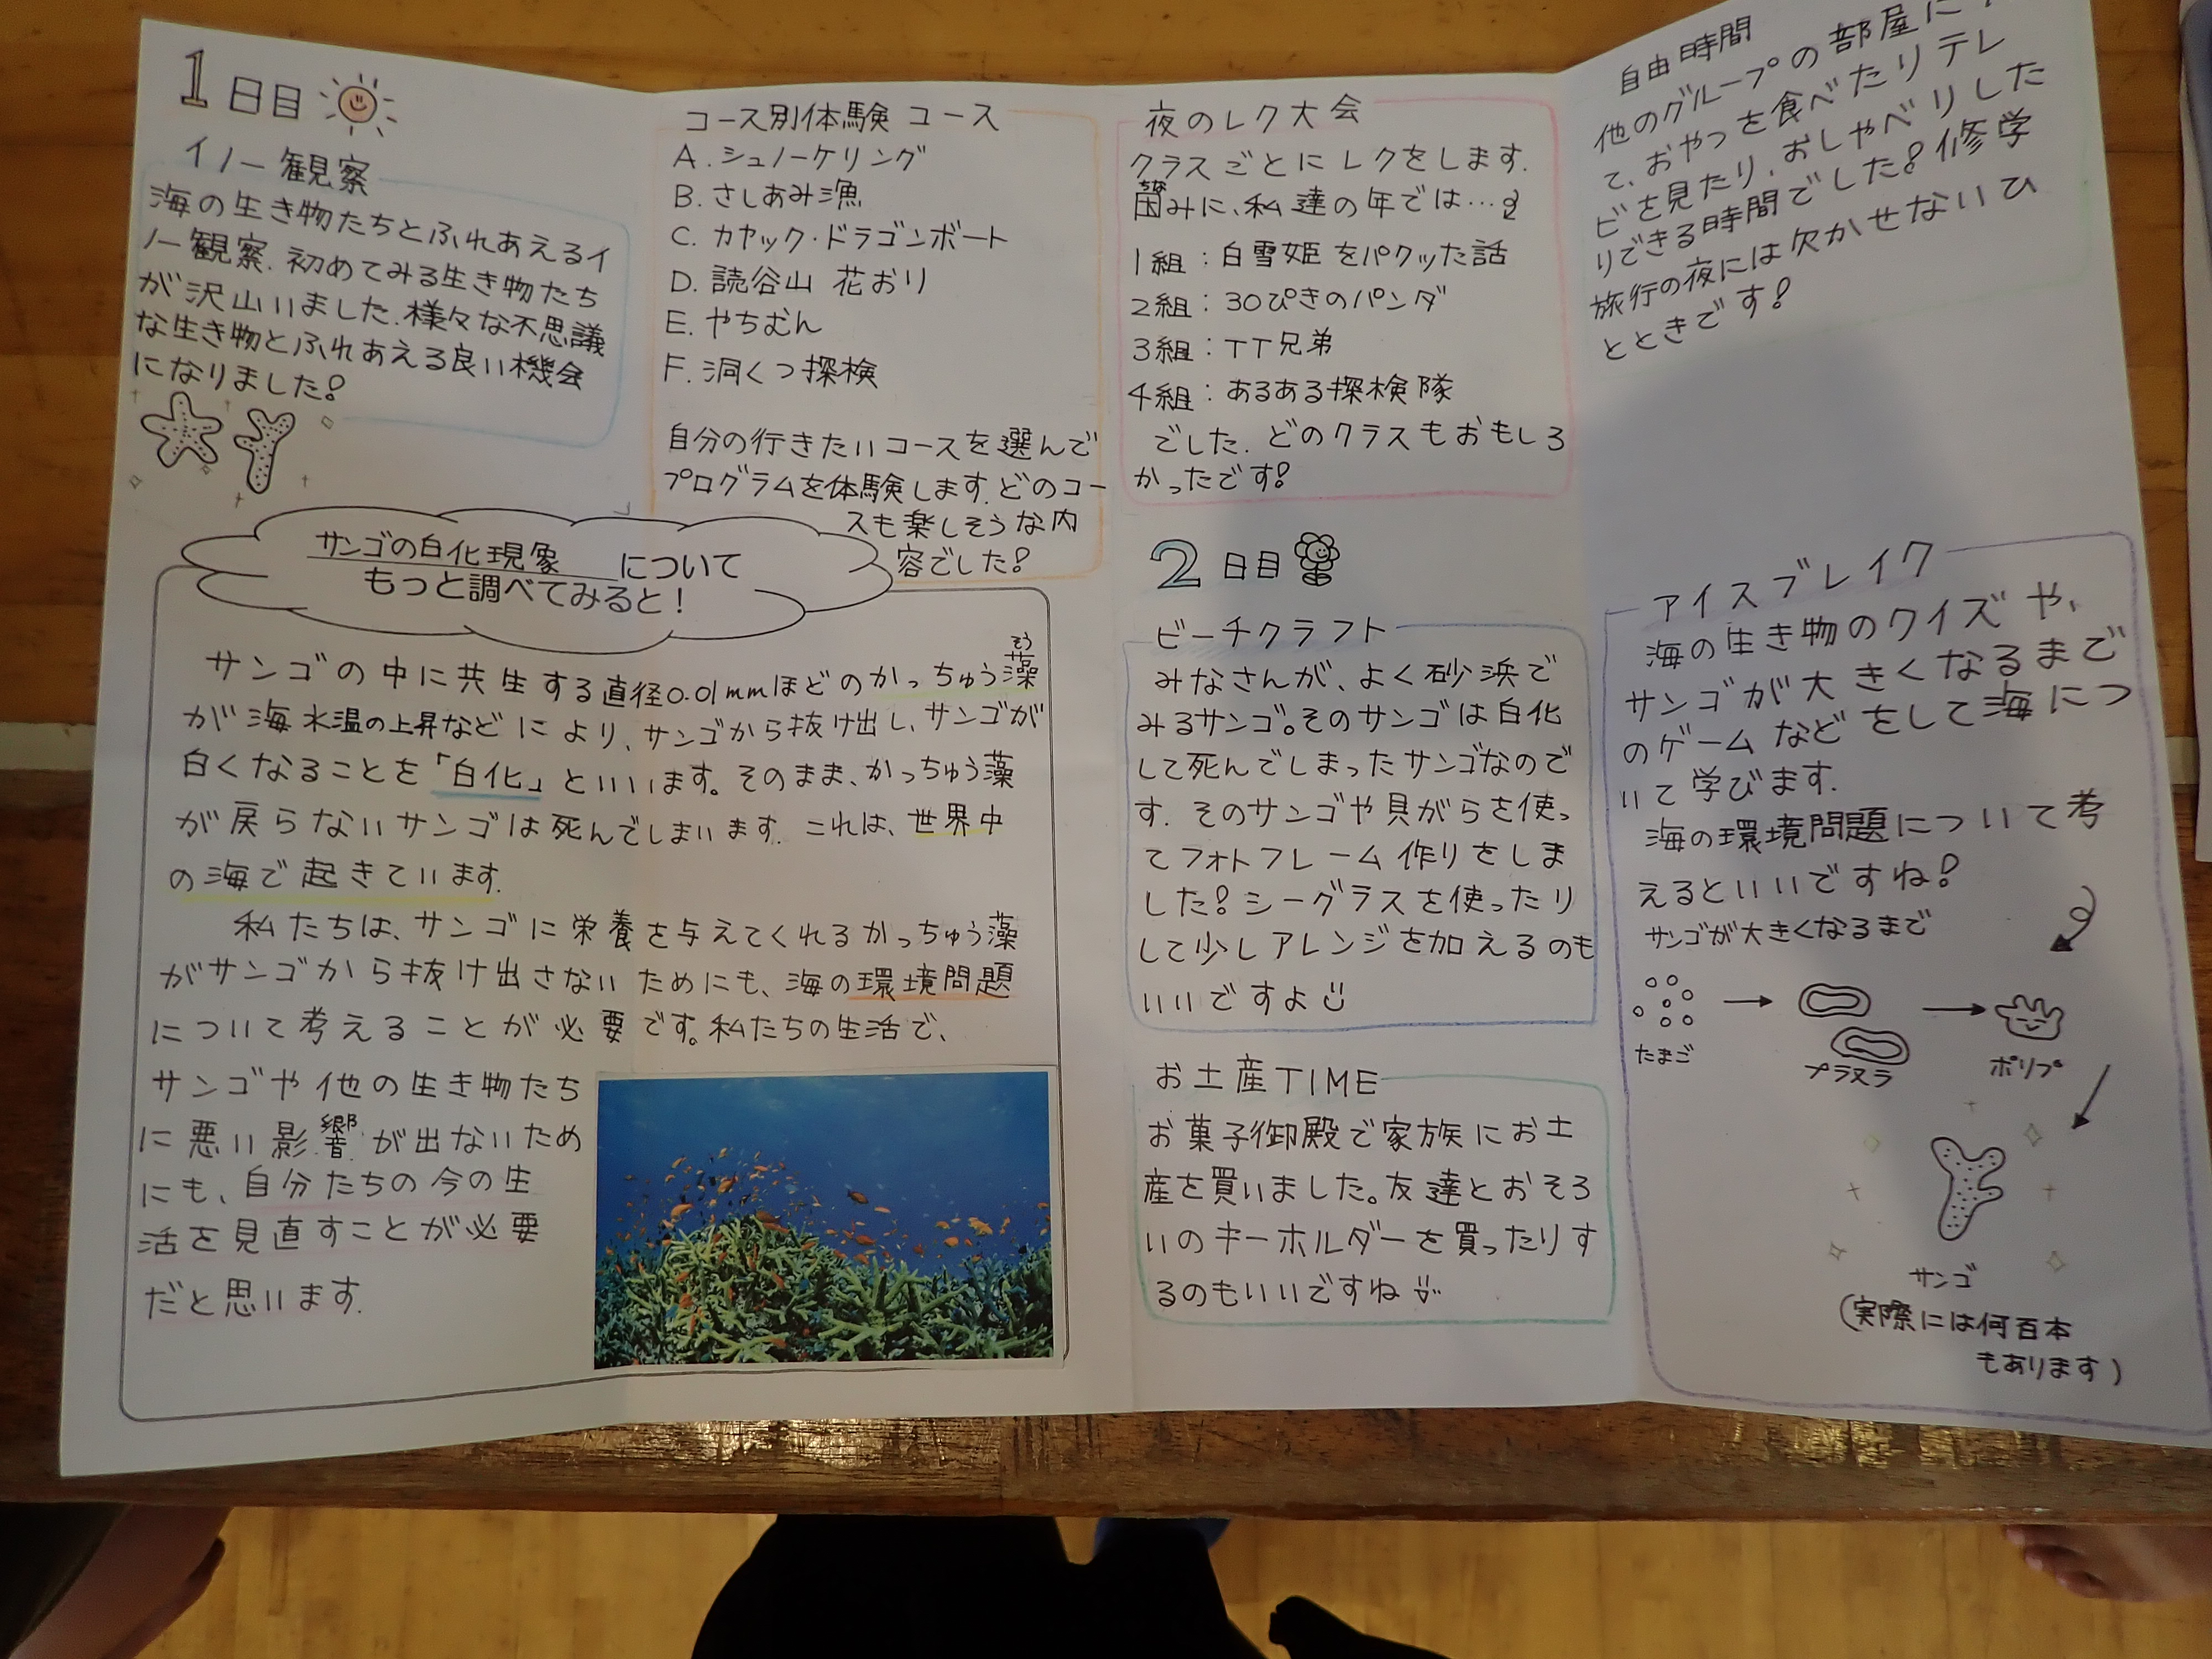 1日目
イノー観察
海の生き物たちとふれあえるイ
ノー観察.初めてみる生き物たち
が沢山いました.様々な不思議
な生き物とふれあえる良い機会
になりました!
コース別体験 コース
A.シュノーケリング
B.さしあみ漁
C.カヤック・ドラゴンボート
D.読谷山 花おり
E.やちむん
F.洞くつ探検
自分の行きたいコースを選んで
プログラムを体験します.どのコー
スも楽しそうな内
容でした!
サンゴの白化現象 について
もっと調べてみると!
サンゴの中に共生する直径0.01mmほどのかっちゅう藻
そう
が海水温の上昇などにより、サンゴから抜け出し、サンゴが
白くなることを「白化」といいます。そのまま、かっちゅう藻
が戻らないサンゴは死んでしまいます.これは、世界中
の海で起きています.
私たちは、サンゴに栄養を与えてくれるかっちゅう藻
がサンゴから抜け出さないためにも、海の環境問題
について考えることが必要です。私たちの生活で、
サンゴや他の生き物たち
に悪い影響が出ないため
にも、自分たちの今の生
活を見直すことが必要
だと思います.
夜のレク大会
クラスごとにレクをします.
みに、私達の年では…
1組:白雪姫をパクッた話
2組:30ぴきのパンダ
3組:TT兄弟
4組:あるある探検隊
でした.どのクラスもおもしろ
かったです!
2日目
ビーチクラフト
みなさんが、よく砂浜で
みるサンゴ。そのサンゴは白化
して死んでしまったサンゴなので
す.そのサンゴや貝がらを使っ
てフォトフレーム作りをしま
した!シーグラスを使ったり
して少しアレンジを加えるのも
いいですよ
お土産TIME
お菓子御殿で家族にお土
産を買いました。友達とおそろ
いのキーホルダーを買ったりす
るのもいいですね
自由時間
他のグループの部屋に
て、おやつを食べたりテレ
ビを見たり、おしゃべりした
りできる時間でした!修学
旅行の夜には欠かせないひ
とときです!
アイスブレイク
海の生き物のクイズや、
サンゴが大きくなるまで
のゲームなどをして海につ
いて学びます.
海の環境問題について考
えるといいですね!
サンゴが大きくなるまで
たまご
プラヌラ
ポリプ
サンゴ
(実際には何百本
もあります)